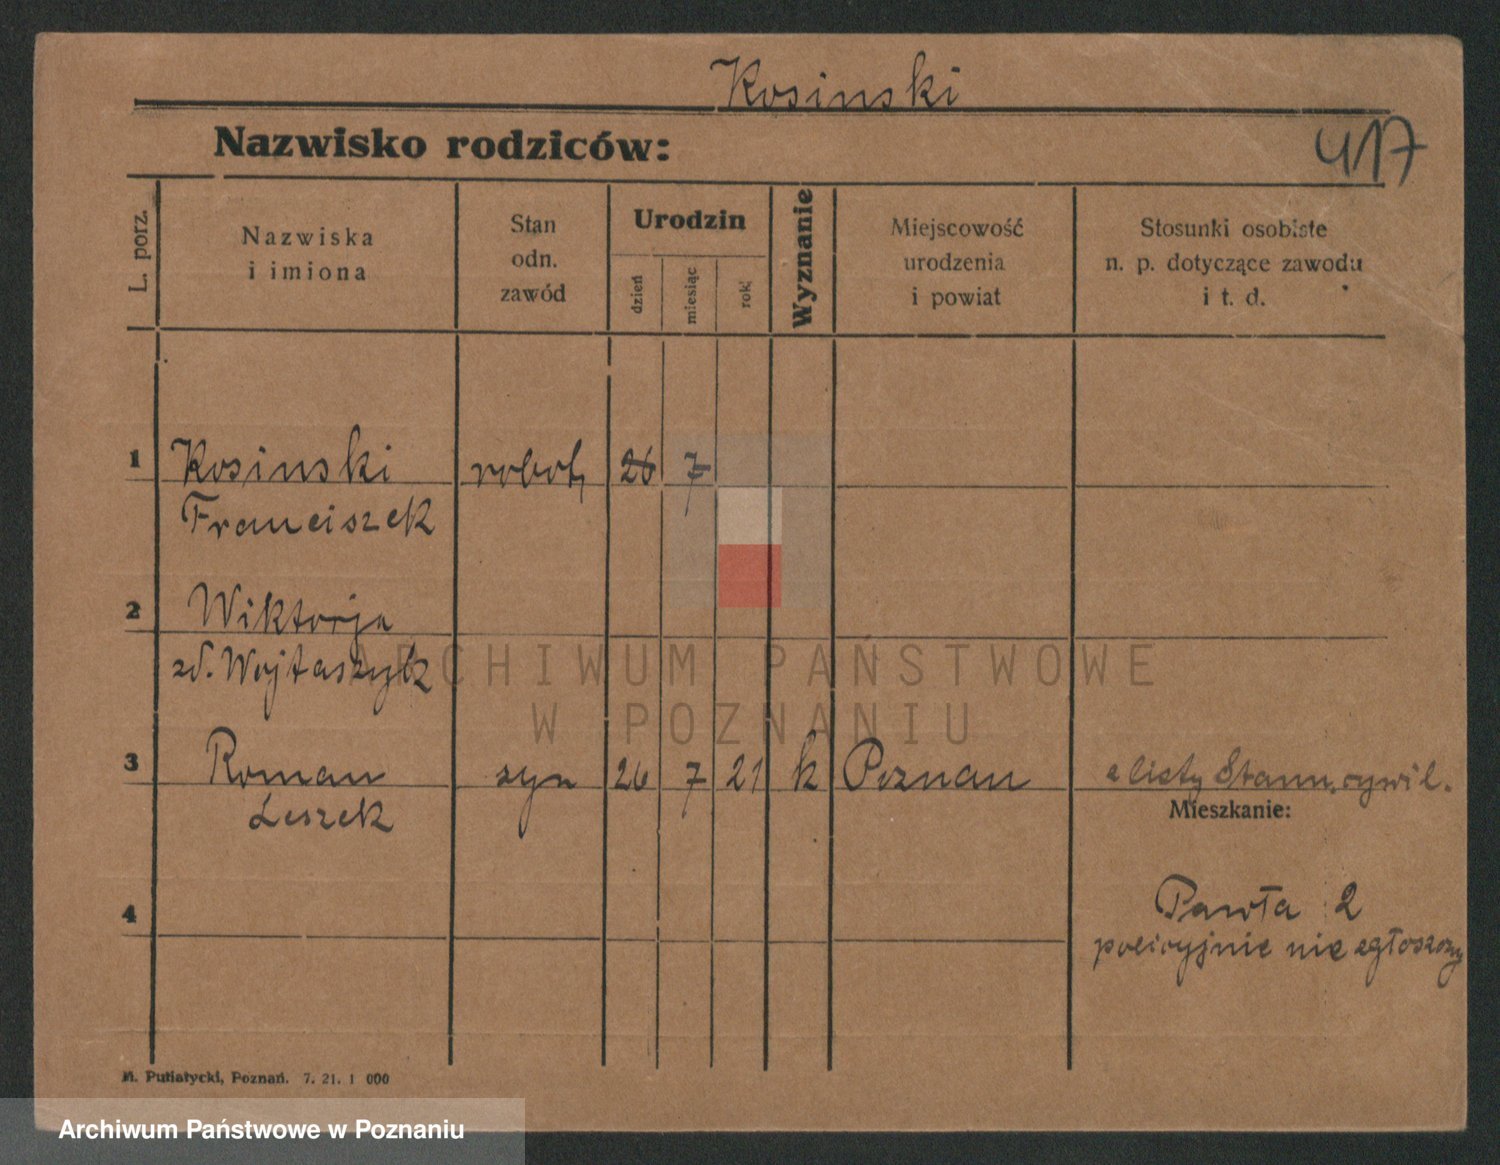 Kosinski
Nazwisko rodziców:
417
L. porz.
Nazwiska
i imiona
Stan
odn.
zawód
Urodzin
dzień
miesiąc
rok
Wyznanie
Miejscowość
urodzenia
i powiat
Stosunki osobiste
n. p. dotyczące zawodu
i t. d.
1 Kosinski robot. 26 7
Franciszek
2 Wiktorja
zd. Wojtaszyk
ARCHIWUM PAŃSTWOWE
W POZNANIU
3 Roman syn 26 7 21 k Poznan z listy Stanu cywil.
Leszek
Mieszkanie:
4
Pawła 2
policyjnie nie zgłoszony
M. Putiatycki, Poznań. 7. 21. 1 000
Archiwum Państwowe w Poznaniu